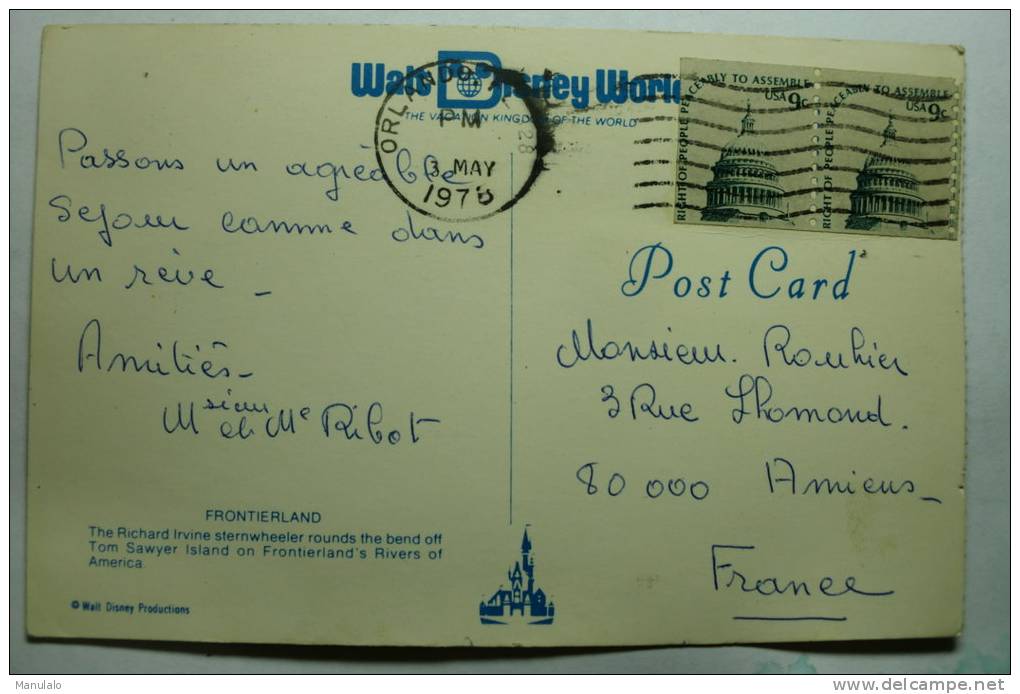 Walt Disney World
THE VACATION KINGDOM OF THE WORLD
ORLANDO
PM
3 MAY
1978
28
RIGHT OF PEOPLE PEACEABLY TO ASSEMBLE
USA 9c
RIGHT OF PEOPLE PEACEABLY TO ASSEMBLE
USA 9c
Passons un agréable
Sejour comme dans
un rêve _
Amitiés -
Msieur et Me Ribot
FRONTIERLAND
The Richard Irvine sternwheeler rounds the bend off
Tom Sawyer Island on Frontierland's Rivers of
America.
© Walt Disney Productions
Post Card
Monsieur. Rouhier
3 Rue Lhomond.
80 000 Amiens -
France
Manulalo
delcampe.net